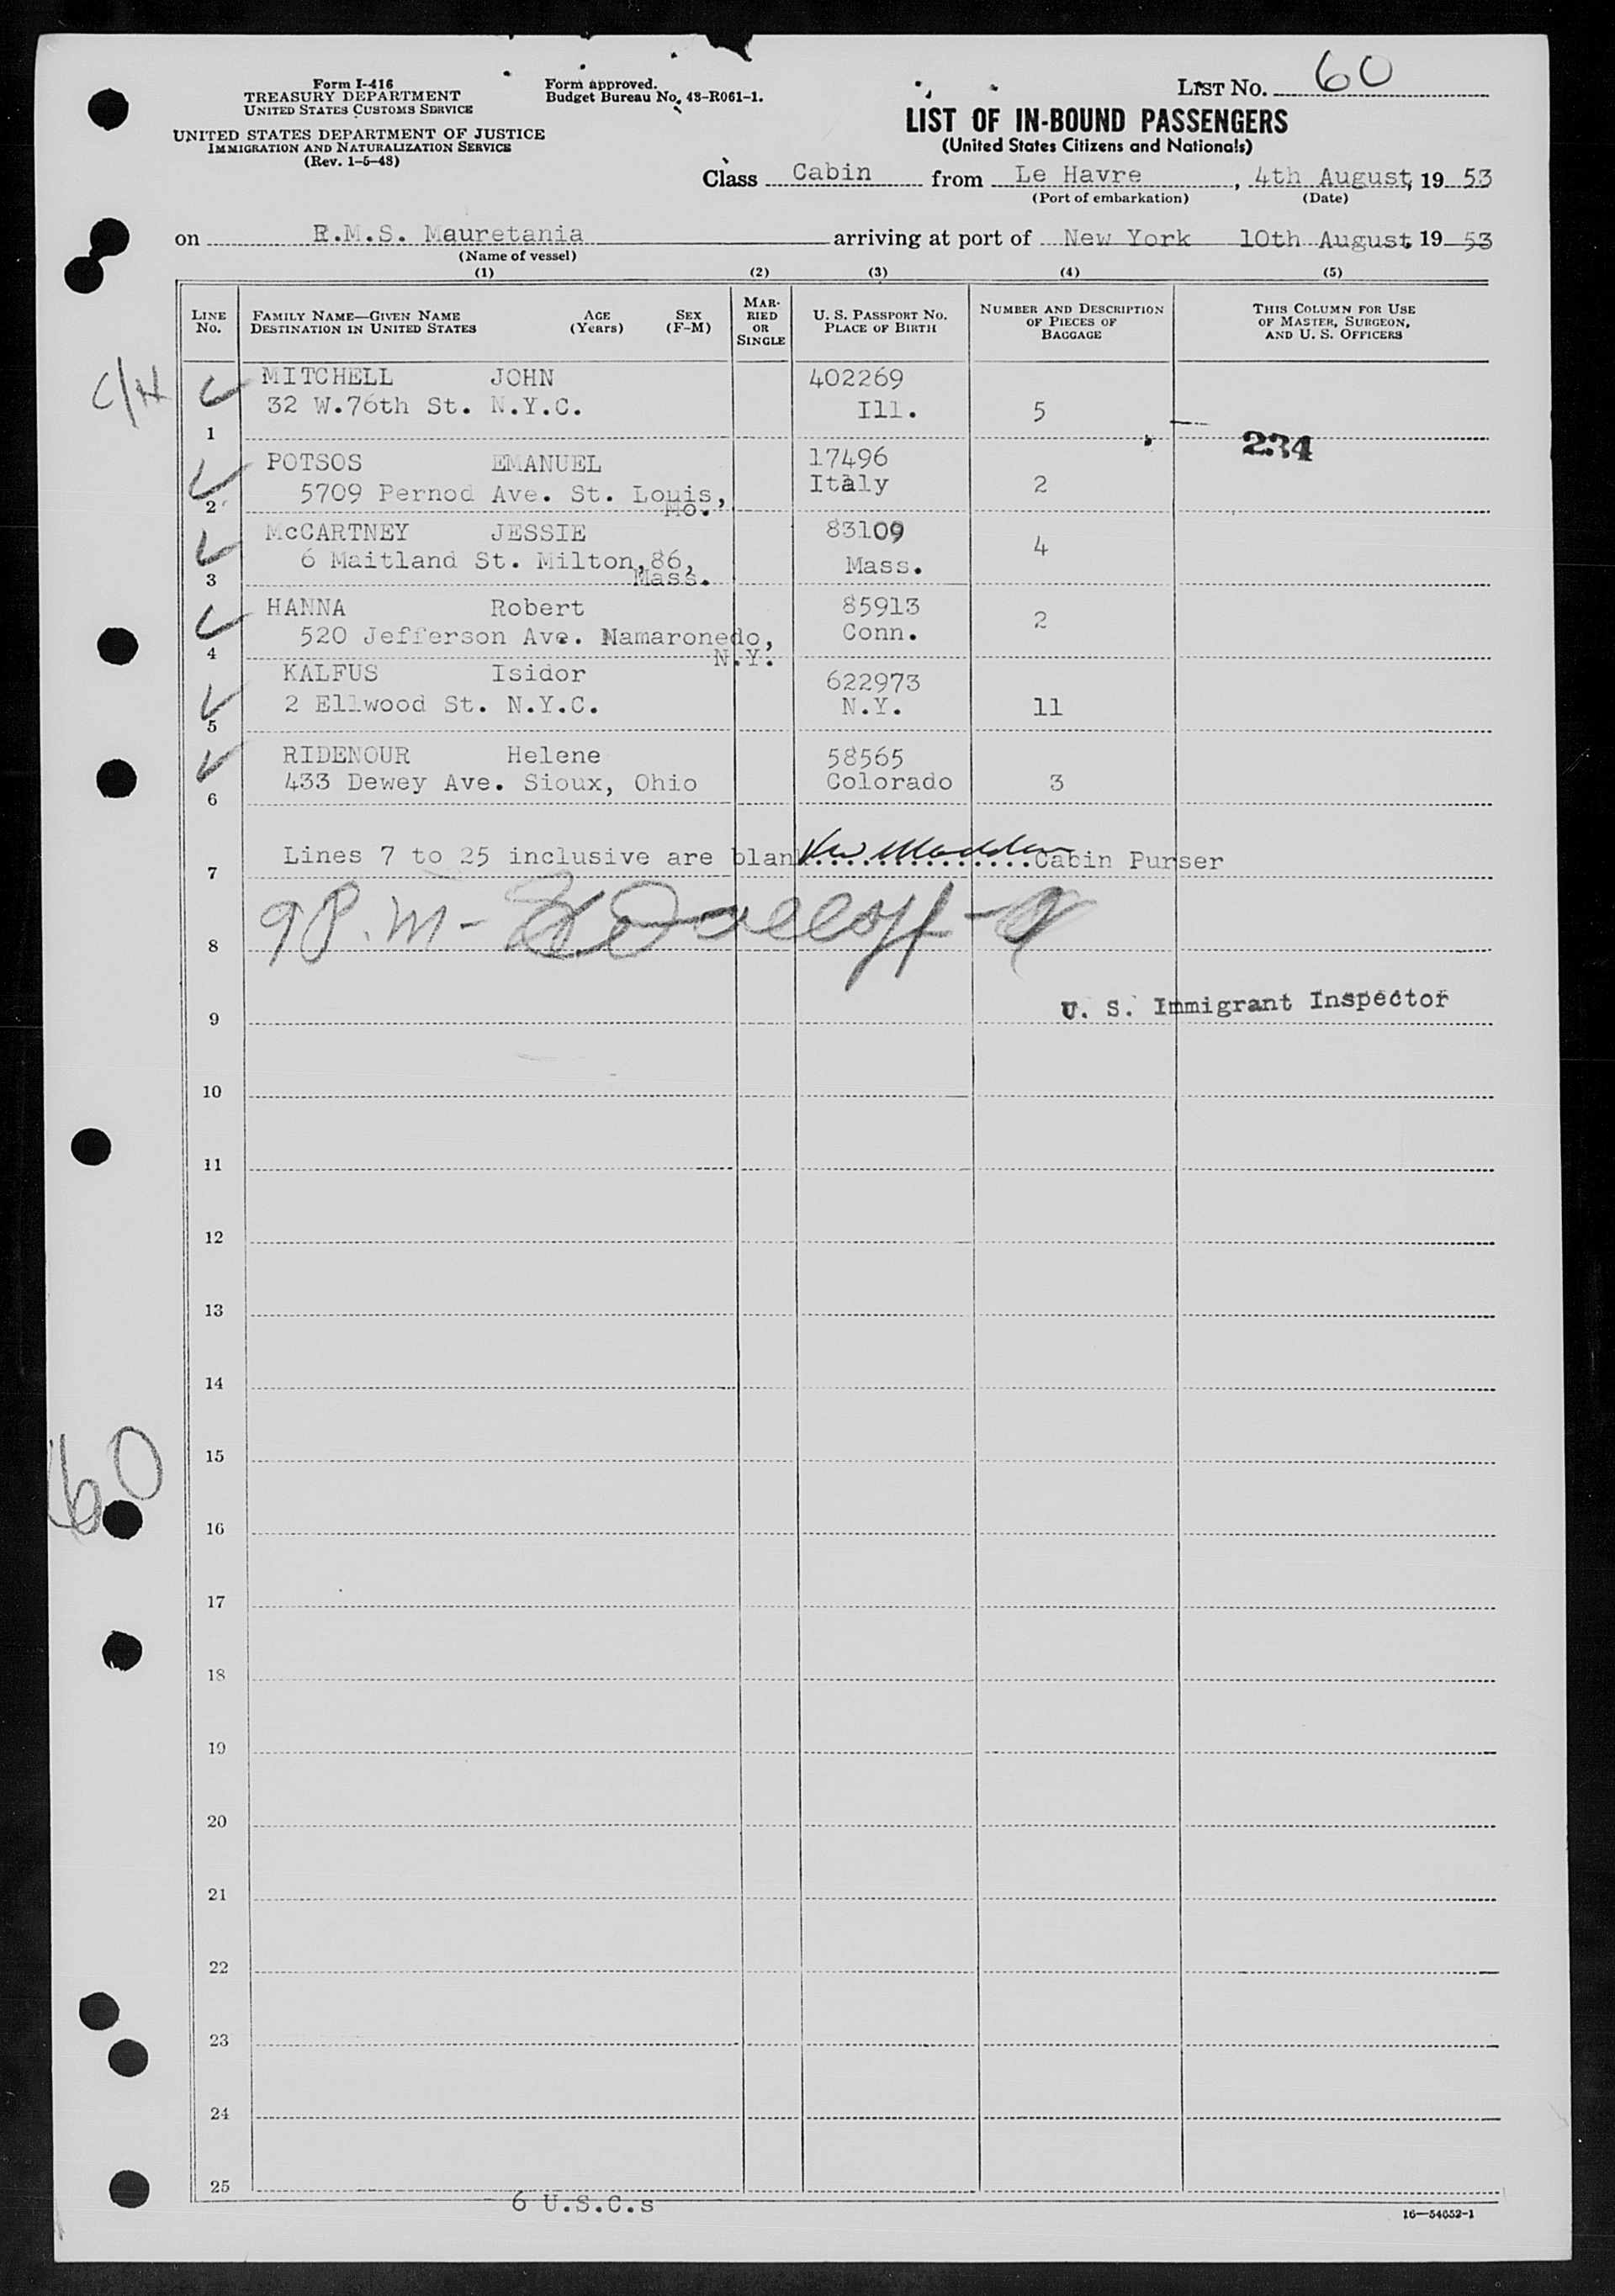 Form I-416
TREASURY DEPARTMENT
UNITED STATES CUSTOMS SERVICE
UNITED STATES DEPARTMENT OF JUSTICE
IMMIGRATION AND NATURALIZATION SERVICE
(Rev. 1-5-48)
Form approved.
Budget Bureau No. 43-R061-1.
LIST NO. 60
LIST OF IN-BOUND PASSENGERS
(United States Citizens and Nationals)
Class Cabin from Le Havre, 4th August, 19 53
(Port of embarkation) (Date)
on R.M.S. Mauretania arriving at port of New York 10th August, 19 53
(Name of vessel)
(1) (2) (3) (4) (5)
LINE NO. FAMILY NAME—GIVEN NAME DESTINATION IN UNITED STATES AGE (Years) SEX (F-M) MARRIED OR SINGLE U. S. PASSPORT NO. PLACE OF BIRTH NUMBER AND DESCRIPTION OF PIECES OF BAGGAGE THIS COLUMN FOR USE OF MASTER, SURGEON, AND U. S. OFFICERS
C/N
MITCHELL JOHN 402269
32 W.76th St. N.Y.C. Ill. 5
1
234
POTSOS EMANUEL 17496
5709 Pernod Ave. St. Louis, Italy 2
2 Mo.
McCARTNEY JESSIE 83109
6 Maitland St. Milton,86, Mass. 4
3 Mass.
HANNA Robert 85913
520 Jefferson Ave. Mamaronedo, Conn. 2
4 N.Y.
KALFUS Isidor 622973
2 Ellwood St. N.Y.C. N.Y. 11
5
RIDENOUR Helene 58565
433 Dewey Ave. Sioux, Ohio Colorado 3
6
Lines 7 to 25 inclusive are blank. Cabin Purser
7
9 P.M-
8
U. S. Immigrant Inspector
9
10
11
12
13
14
15
60
16
17
18
19
20
21
22
23
24
25
6 U.S.C.s
16—54652-1